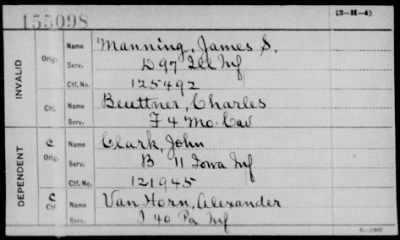 155098
(3-H-4)
INVALID
Orig.
Name Manning, James S.
Serv. D 97 Ill Inf
Ctf. No. 125492
Ctf.
Name Beuttner, Charles
Serv. F 4 Mo. Cav
DEPENDENT
C
Orig.
Name Clark, John
Serv. B 11 Iowa Inf
Ctf. No. 121945
C
Ctf
Name Van Horn, Alexander
Serv. I 40 Pa Inf